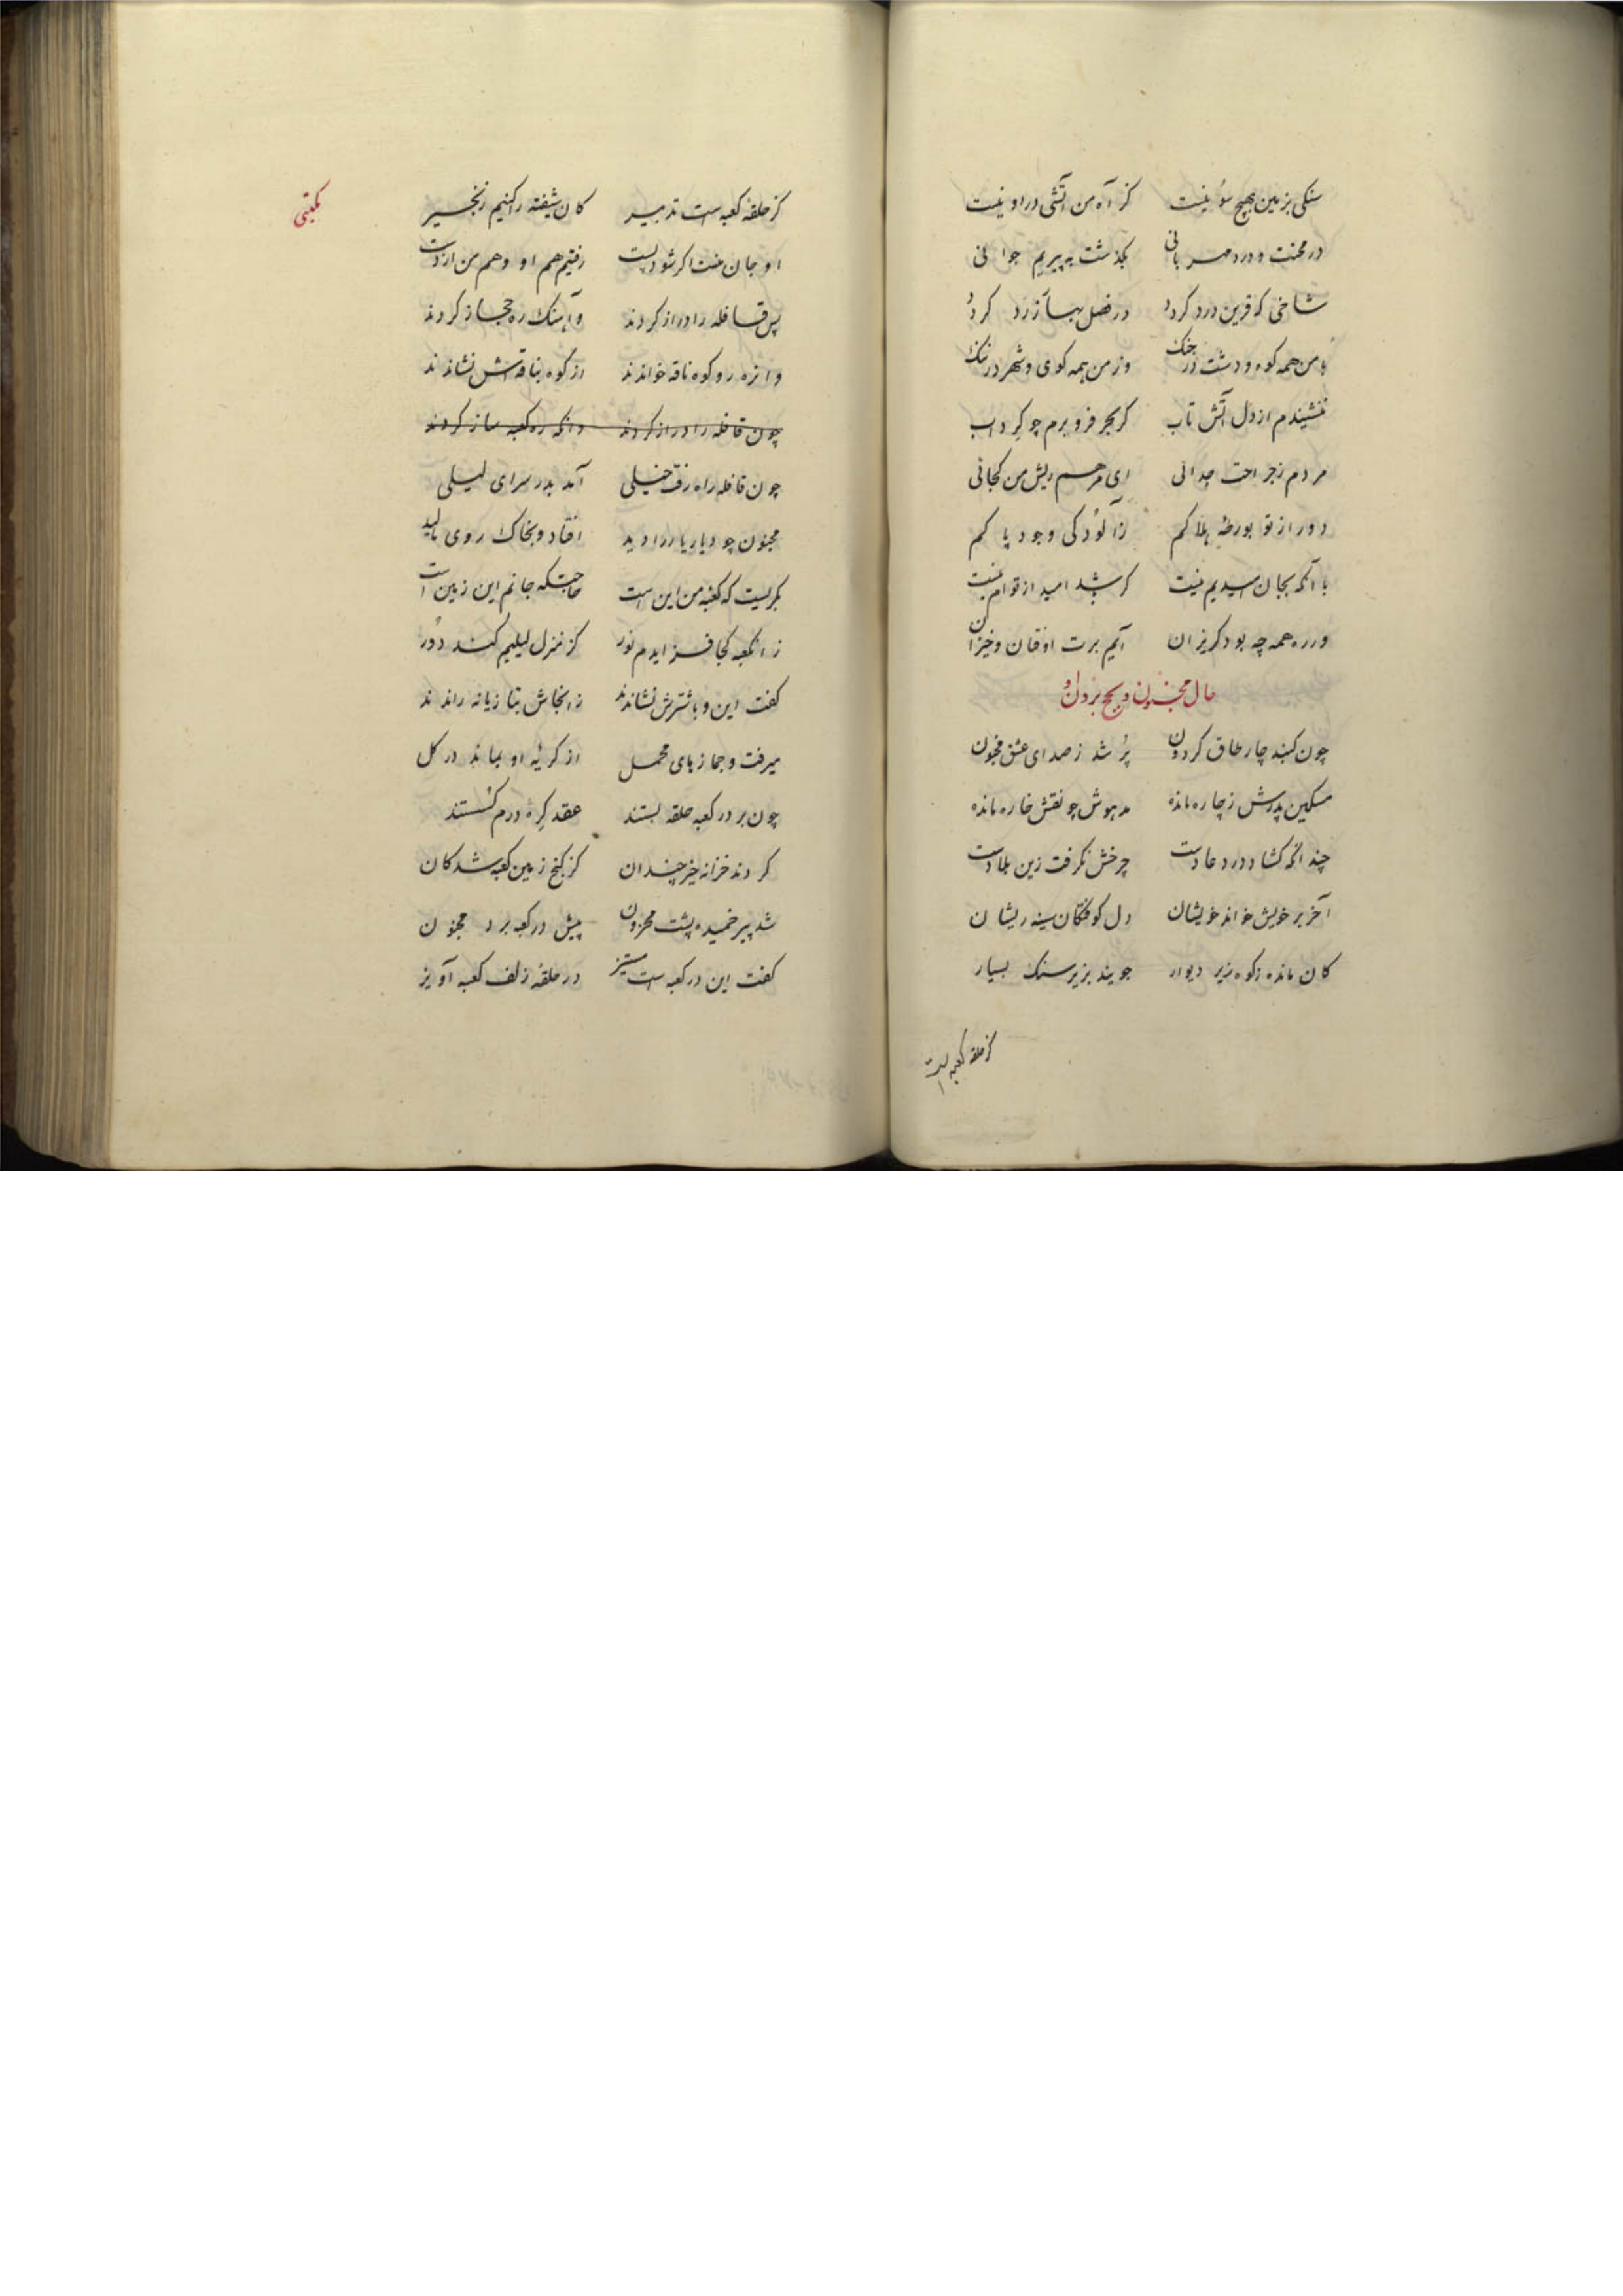 سنکی بزمین بهیچ سو نیست کز آه من آتشی در او نیست
در محنت و درد مهربانی بگذشت به پیریم جوانی
شاخی که قرین درد کردد در فصل بهار زرد کردد
با من همه کوه و دشت در جنک وز من همه کوی و شهر در ننک
ننشیندم از دل آتش تاب کر بحر فرو برم چو کرداب
مردم ز جراحت جدائی ای مرهم ریش من کجائی
دور از تو بورطه هلاکم ز آلودکی وجود پاکم
با آنکه بجان رسیدیم نیست کر شد امید از توام نیست
ور ره همه چه بود کریزان آیم برت اوفتان و خیزان
حال مجنون و بحج بردن او
چون کنبد چار طاق کردون پر شد ز صدای عشق مجنون
مسکین پدرش ز چاره مانده مدهوش چو نقش خاره مانده
چندانکه کشاد در دعا دست چرخش نکرفت زین بلا دست
آخر بر خویش خواند خویشان دل کوفتکان سینه ریشان
کان مانده ز کوه زیر دیوار جویند بزیر سنک بسیار
کز حلقه کعبه است
کز حلقه کعبه است تدبیر کان شیفته را کنیم زنجیر
او جان منست اکر شود پست رفتیم هم او و هم من از دست
پس قافله را دراز کردند و آهنک ره حجاز کردند
وانزه رو کوه ناقه خواندند از کوه بناقه‌اش نشاندند
چون قافله را دراز کردند وانکه ره کعبه ساز کردند
چون قافله راه رفت خیلی آمد بدر سرای لیلی
مجنون چو دیار یار را دید افتاد و بخاک روی مالید
بکریست که کعبه من این است حاجتکه جانم این زمین است
زانکعبه کجا فزایدم نور کز منزل لیلیم کند دور
کفت این و باشترش نشاندند زانجاش بتازیانه راندند
میرفت و جمازهای محمل از کریه او بماند در کل
چون بر در کعبه حلقه بستند عقد کره درم کسستند
کردند خزانه خیز چندان کز کنج زمین کعبه شد کان
شد پیر خمیده پشت محزون پیش در کعبه برد مجنون
کفت این در کعبه است مستیز در حلقه زلف کعبه آویز
مکتبی